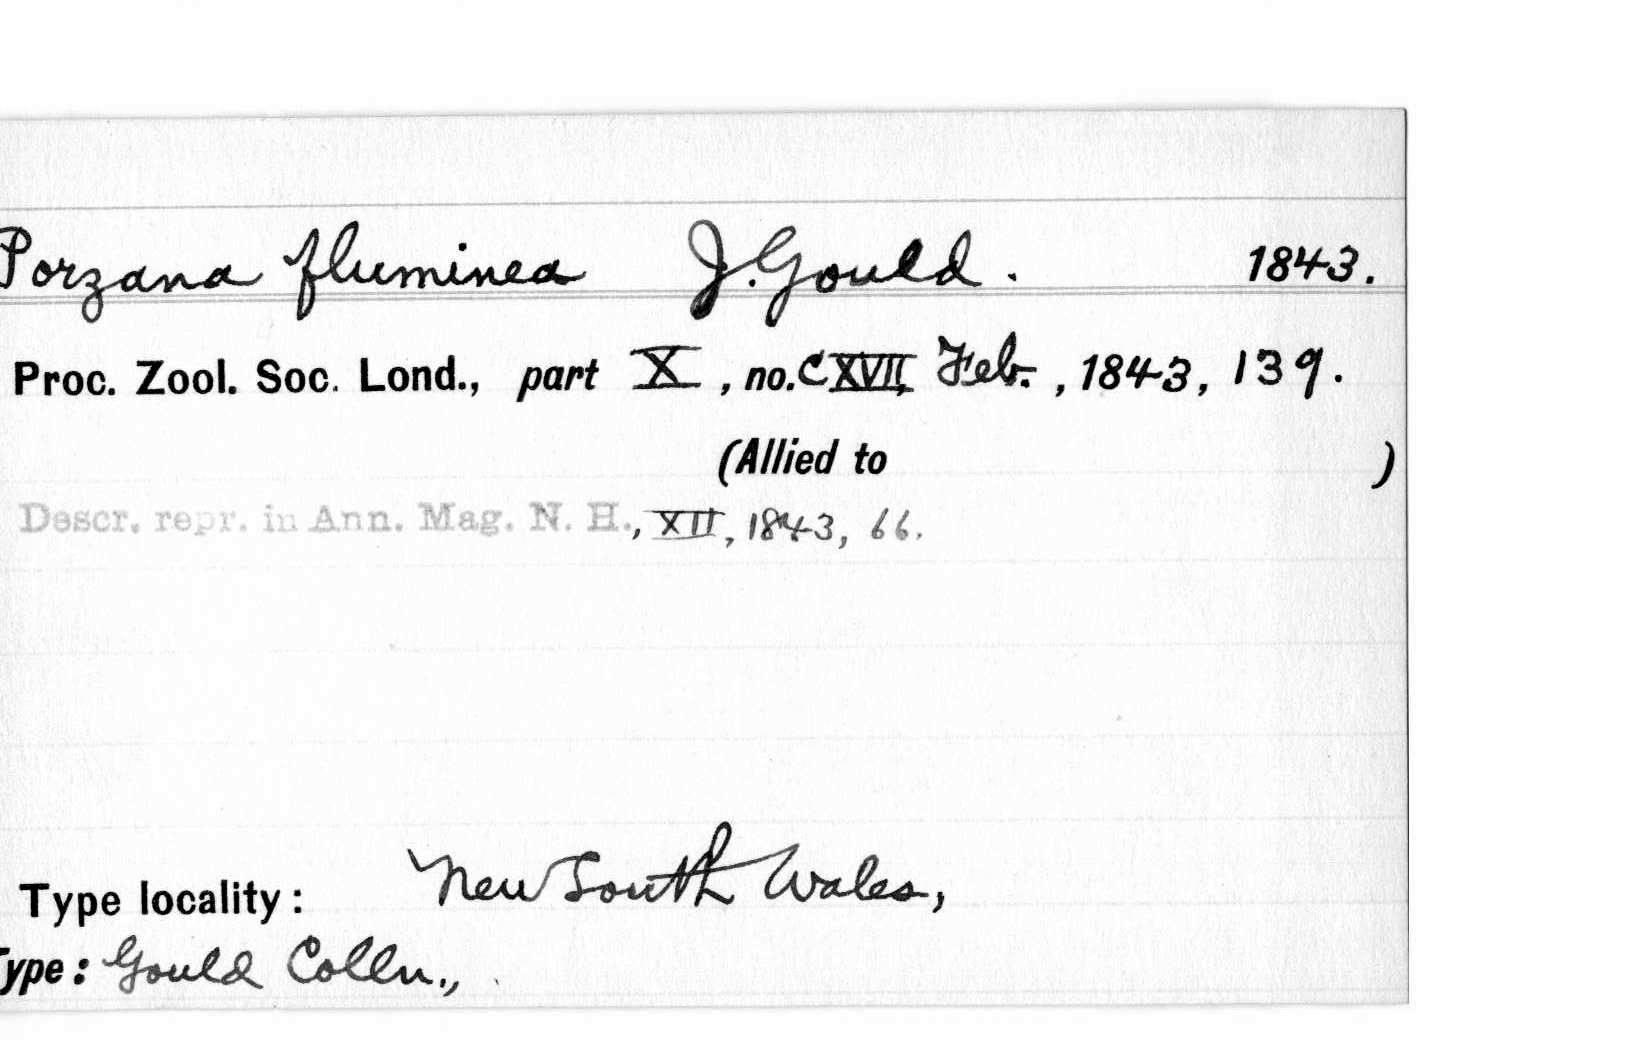 Porzana fluminea J. Gould. 1843.
Proc. Zool. Soc. Lond., part X, no. CXVII, Feb., 1843, 139.
(Allied to )
Descr. repr. in Ann. Mag. N. H., XII, 1843, 66.
Type locality: New South Wales,
Type: Gould Colln.,